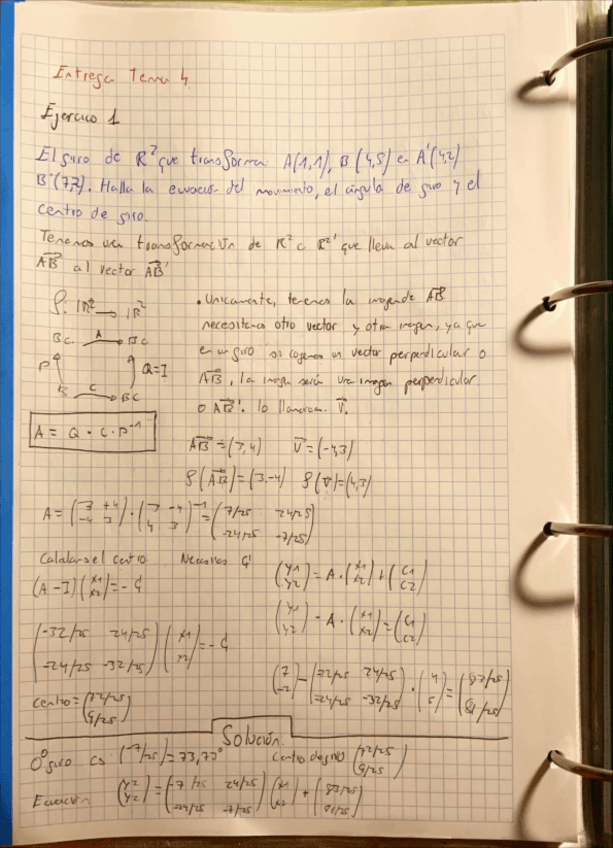 Entrega Tema 4
Ejercicio 1
El giro de R² que transforma A(1,1), B(4,5) en A'(4,2)
B'(7,2). Halla la ecuación del movimiento, el ángulo de giro y el
centro de giro.
Tenemos una transformación de R² a R²' que lleva al vector
AB al vector AB'
ρ: R² → R²
Bc A Bc
P Q=I
B C BC
A = Q · C · P⁻¹
• Unicamente, tenemos la imagen de AB
necesitamos otro vector y otra imagen, ya que
en un giro si cogemos un vector perpendicular a
AB, la imagen será una imagen perpendicular
a AB'. lo llamaremos V.
AB = (3,4) V = (-4,3)
ρ(AB) = (3,-4) ρ(V) = (4,3)
A = (3 +4 / -4 3) · (3 -4 / 4 3)⁻¹ = (7/25 24/25 / -24/25 -7/25)
Calculamos el centro Necesitamos C
(A - I) (x1 / x2) = - C
(-32/25 24/25 / -24/25 -32/25) (x1 / x2) = - C
centro = (72/25 / 9/25)
(y1 / y2) = A · (x1 / x2) + (C1 / C2)
(y1 / y2) - A · (x1 / x2) = (C1 / C2)
(7 / -2) - (-32/25 24/25 / -24/25 -32/25) · (4 / 5) = (83/25 / 81/25)
Solución
giro es (-7/25) = 73,70°
Centro de giro (72/25 / 9/25)
Ecuación (y2 / y2) = (-7/25 24/25 / -24/25 -7/25) (x1 / x2) + (83/25 / 81/25)